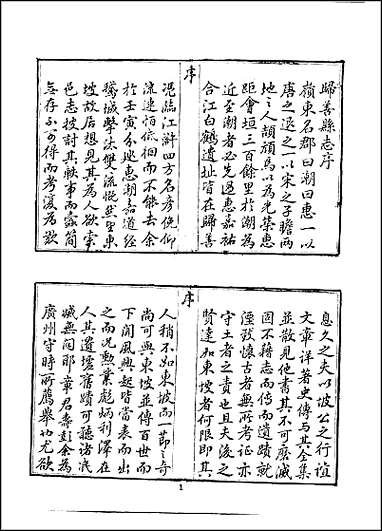 歸善縣志序
嶺東名郡曰潮曰惠一以
唐之退之一以宋之子瞻兩
地之人頡頏焉以為光榮惠
距會垣三百餘里於潮為
近至潮者必先過惠嘉祐
合江白鶴遺址皆在歸善
序
況臨江滸四方名彥俛仰
流連恒低徊而不能去余
於壬寅分巡惠潮嘉道經
鵞城擊汰豐流慨然望東
坡故居想見其為人欲索
邑志披討其軼事而蠹簡
無存不可得而考復為歎
息久之夫以坡公之行誼
文章洋著史傳與其全集
並散見他書其不可磨滅
固不藉志而傳而遺蹟就
湮致懷古者無所考証亦
守土者之責也且夫後之
賢達如東坡者何限即其
序
人稍不如東坡而一節之奇
尚可與東坡並傳百世而
下聞風興起皆當表而出
之而況勳業彪炳利澤在
人其遺墟舊蹟可聽諸冺
滅無聞耶章君壽彭余為
廣州守時所薦舉也尤欲
1